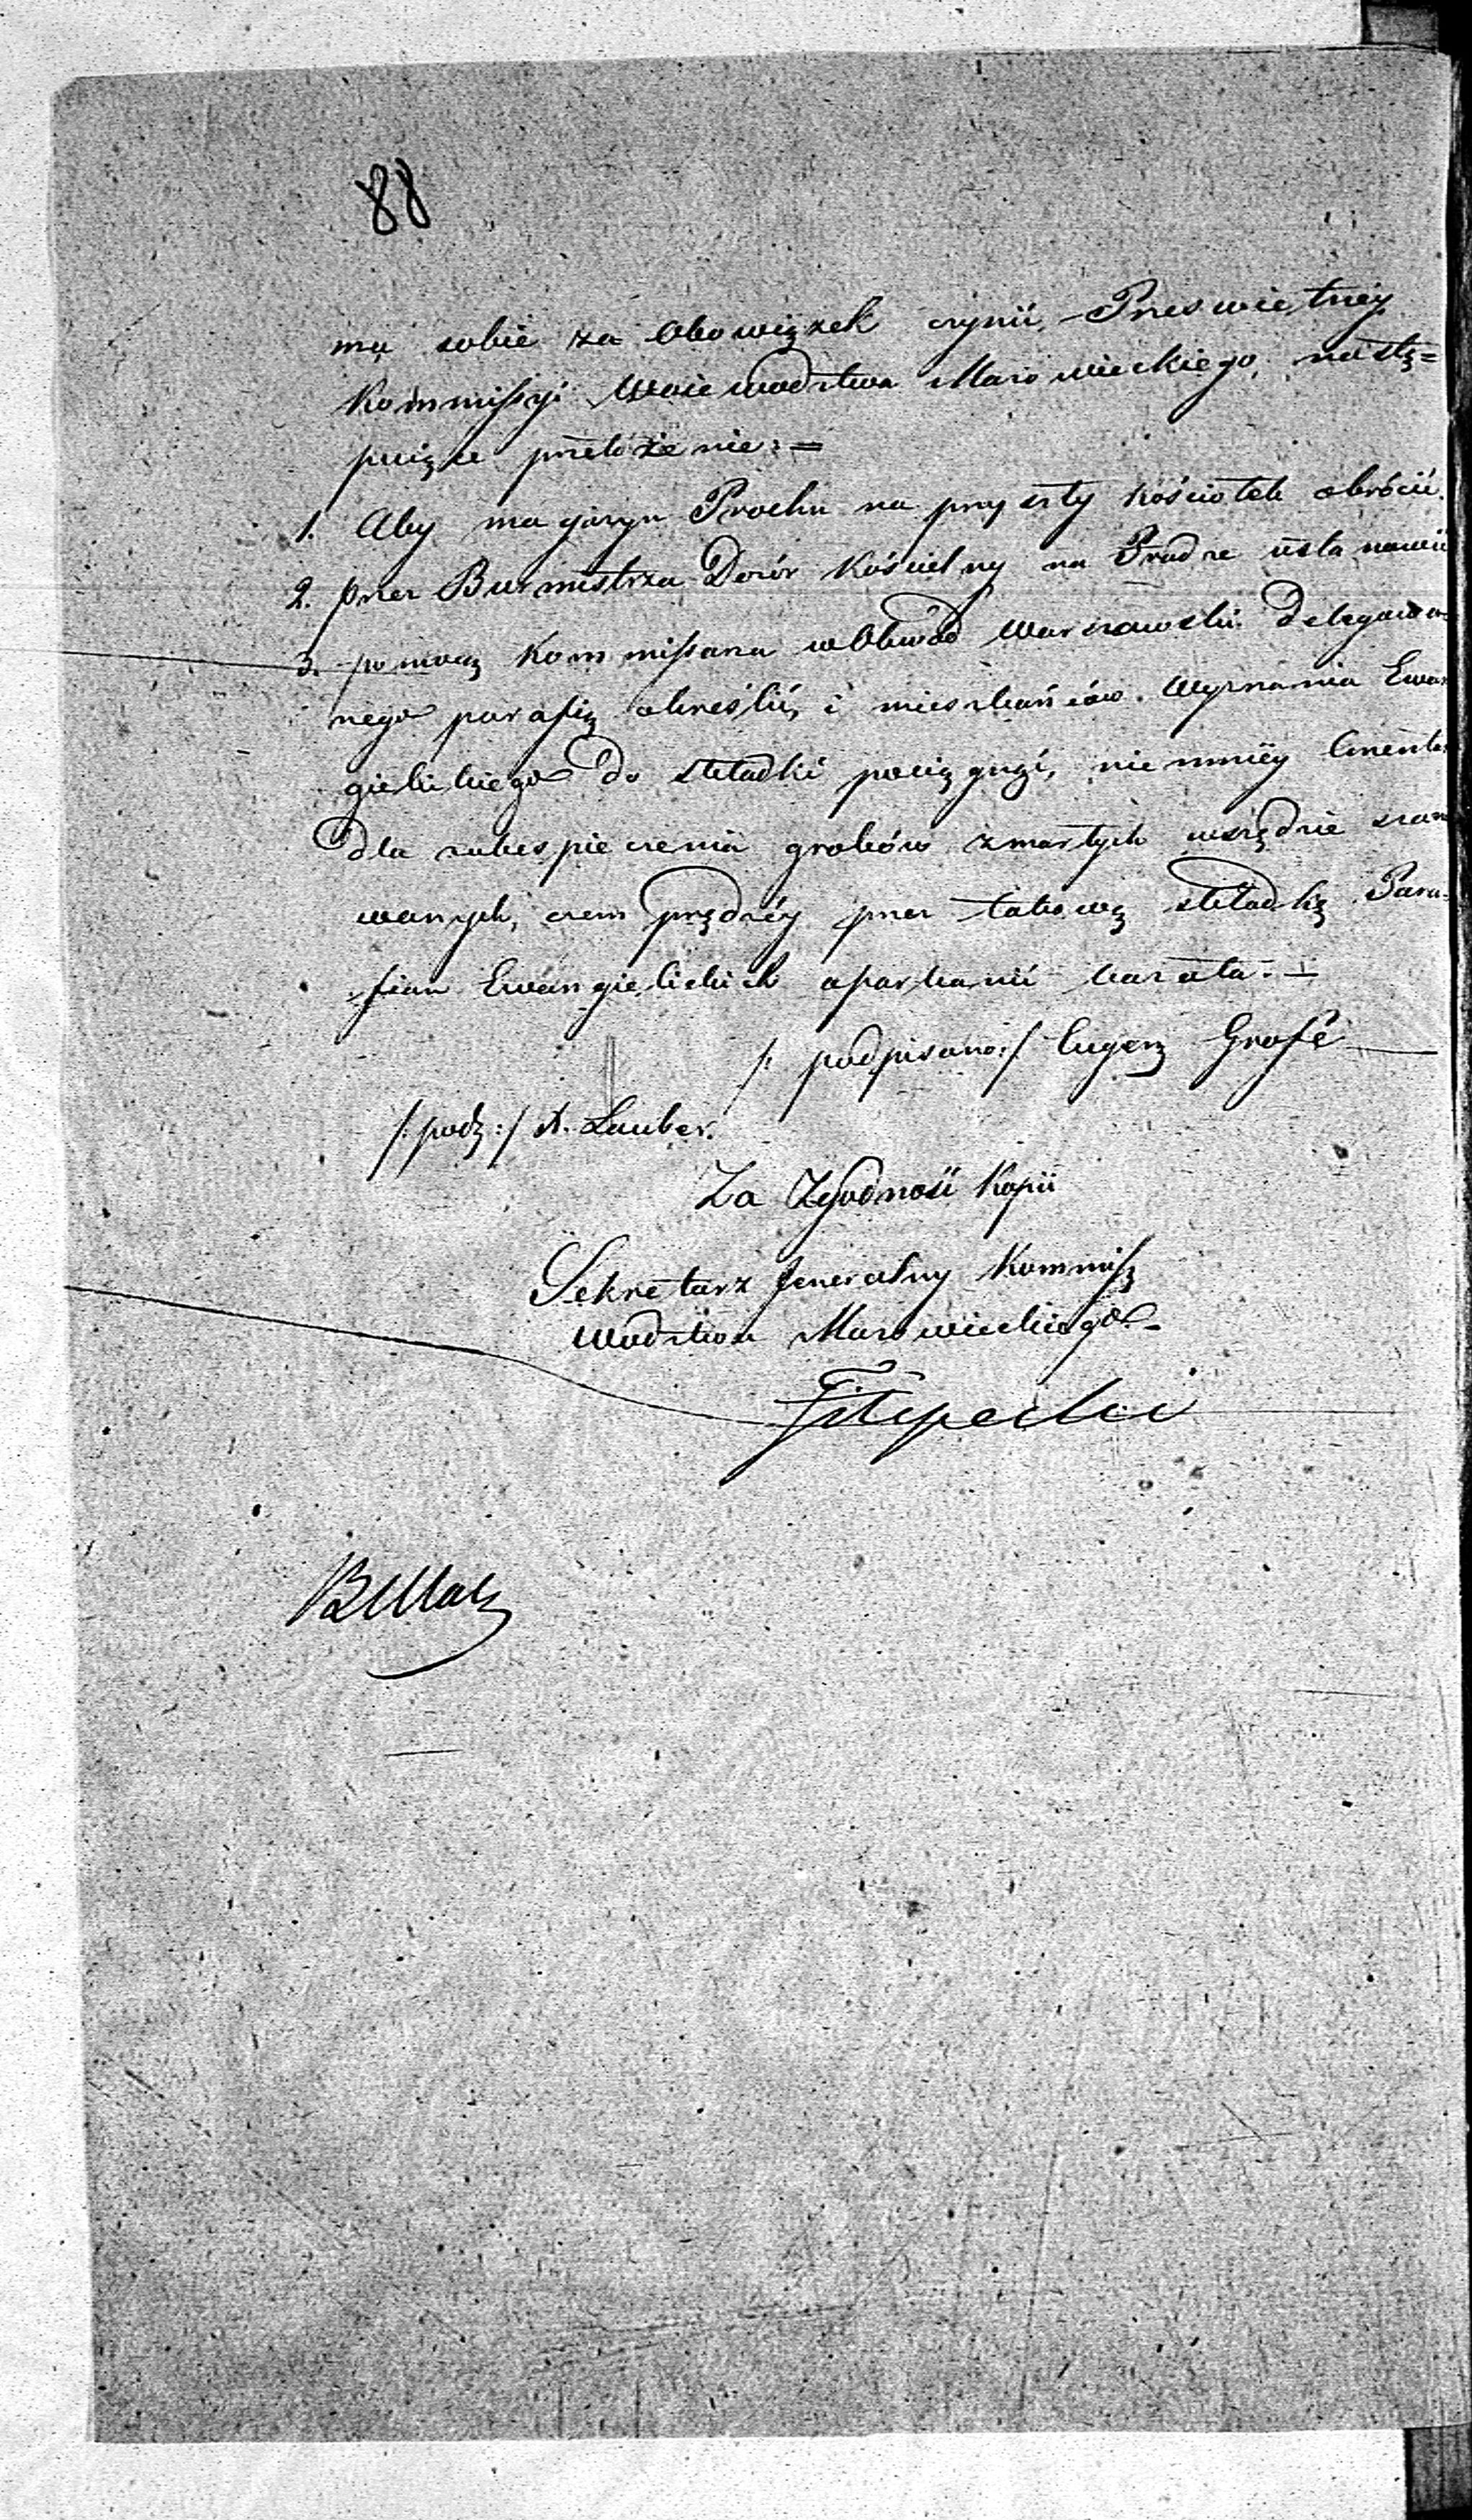 88
mą sobie za Obowiązek czynić, Prześwietney
Kommissyi Wojewodztwa Mazowieckiego, nastę=
puiące przełożenie: =
1. Aby magazyn Prochu na przyszły kościołek obrócić.
2. przez Burmistrza Dozór Kościelny na Pradze ustanowić
3. pomocą Kommissarza w Obwód Warszawski Delegowa=
nego parafią określić, i mieszkańców Wyznania Ewan
gielickiego do składki pociągnąć, niemniéy Cmentarz
dla zabespieczenia grobów zmarłych wszędzie szano
wanych, czem prędzéy przez takową składkę Para=
fian Ewangielickich oparkanić kazała. —
/: podpisano :/ Eugeny Grofe
/: podz :/ A. Lauber.
Za Zgodność Kopii
Sekretarz Jeneralny Kommissy
Wodztwa Mazowieckiego
Filipecki